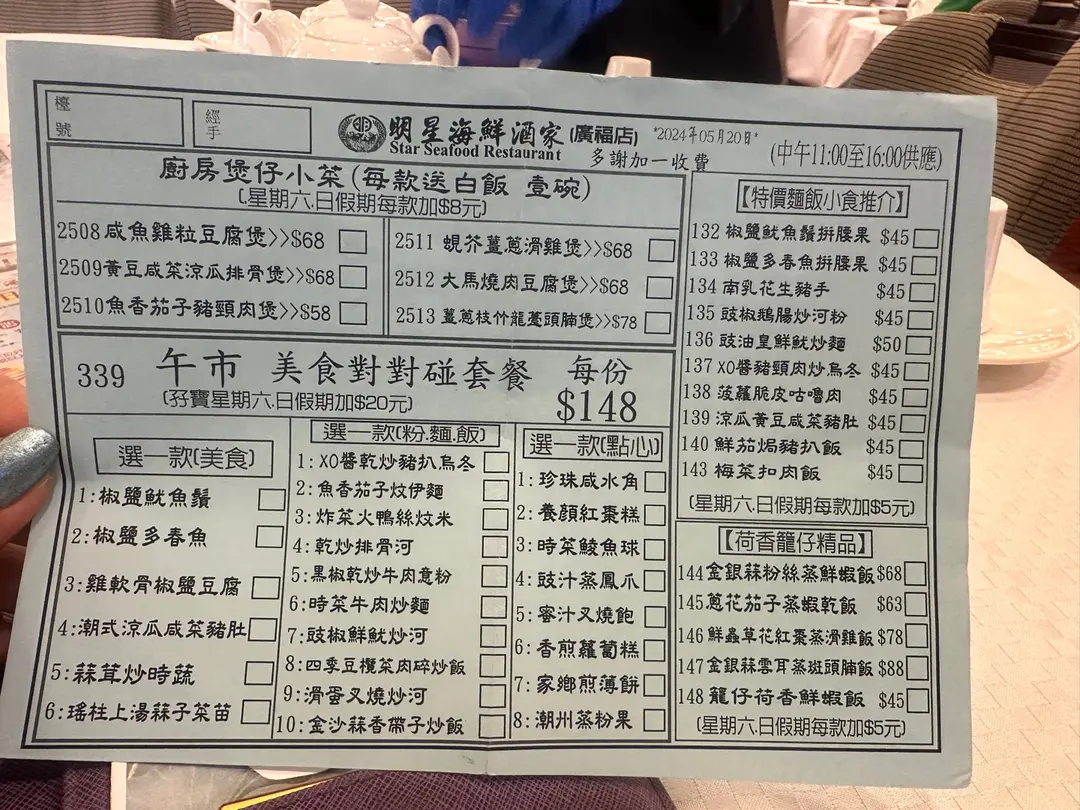 檯號
經手
明星海鮮酒家(廣福店)
Star Seafood Restaurant
多謝加一收費
*2024年05月20日*
(中午11:00至16:00供應)
廚房煲仔小菜(每款送白飯 壹碗)
(星期六.日假期每款加$8元)
2508咸魚雞粒豆腐煲>>$68
2509黃豆咸菜涼瓜排骨煲>>$68
2510魚香茄子豬頸肉煲>>$58
2511 蜆芥薑蔥滑雞煲>>$68
2512 大馬燒肉豆腐煲>>$68
2513 薑蔥枝竹龍躉頭腩煲>>$78
339 午市 美食對對碰套餐 每份
(孖寶星期六.日假期加$20元)
$148
選一款(美食)
1:椒鹽魷魚鬚
2:椒鹽多春魚
3:雞軟骨椒鹽豆腐
4:潮式涼瓜咸菜豬肚
5:蒜茸炒時蔬
6:瑤柱上湯蒜子菜苗
選一款(粉.麵.飯)
1:XO醬乾炒豬扒烏冬
2:魚香茄子炆伊麵
3:炸菜火鴨絲炆米
4:乾炒排骨河
5:黑椒乾炒牛肉意粉
6:時菜牛肉炒麵
7:豉椒鮮魷炒河
8:四季豆欖菜肉碎炒飯
9:滑蛋叉燒炒河
10:金沙蒜香帶子炒飯
選一款(點心)
1:珍珠咸水角
2:養顏紅棗糕
3:時菜鯪魚球
4:豉汁蒸鳳爪
5:蜜汁叉燒飽
6:香煎蘿蔔糕
7:家鄉煎薄餅
8:潮州蒸粉果
【特價麵飯小食推介】
132 椒鹽魷魚鬚拼腰果 $45
133 椒鹽多春魚拼腰果 $45
134 南乳花生豬手 $45
135 豉椒鵝腸炒河粉 $45
136 豉油皇鮮魷炒麵 $50
137 XO醬豬頸肉炒烏冬 $45
138 菠蘿脆皮咕嚕肉 $45
139 涼瓜黃豆咸菜豬肚 $45
140 鮮茄焗豬扒飯 $45
143 梅菜扣肉飯 $45
(星期六.日假期每款加$5元)
【荷香籠仔精品】
144金銀蒜粉絲蒸鮮蝦飯$68
145蔥花茄子蒸蝦乾飯 $63
146 鮮蟲草花紅棗蒸滑雞飯$78
147金銀蒜雲耳蒸斑頭腩飯$88
148 籠仔荷香鮮蝦飯 $45
(星期六.日假期每款加$5元)